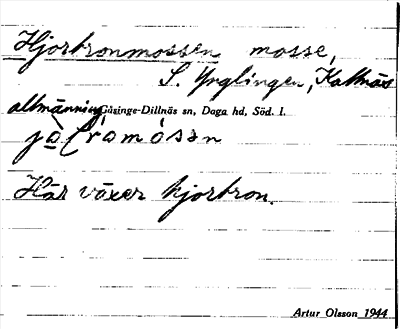 Hjortronmossen mosse,
S. Ynglingen, Kalknäs
allmänning, Gåsinge-Dillnäs sn, Daga hd, Söd. l.
Här växer hjortron.
Artur Olsson 1944